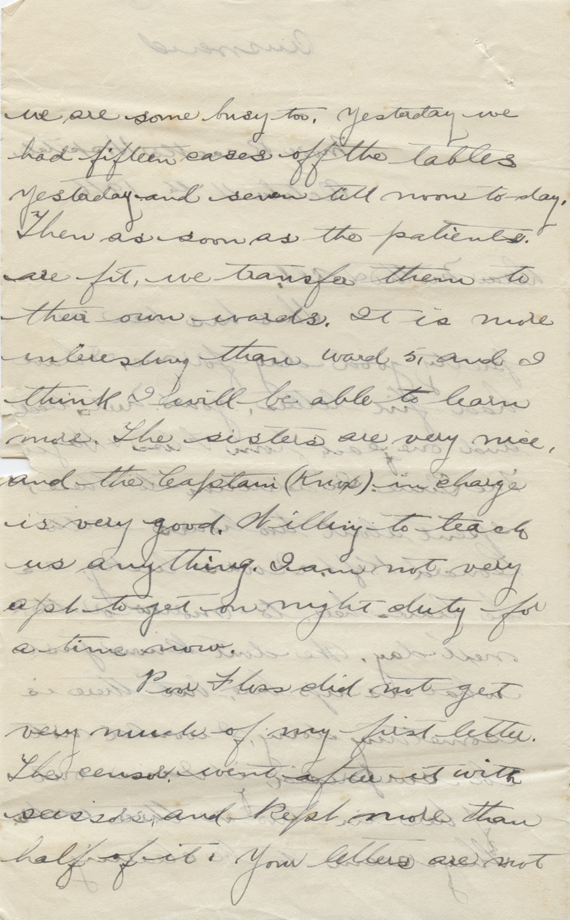 we are some busy too. Yesterday we
had fifteen cases off the tables
yesterday and seven till noon to-day.
Then as soon as the patients.
are fit, we transfer them to
their own wards. It is more
interesting than ward 5, and I
think I will be able to learn
more. The sisters are very nice,
and the Captain (Knox) in charge
is very good. Willing to teach
us anything. I am not very
apt to get on night duty for
a time now.
Poor Floss did not get
very much of my first letter.
The censor went after it with
scissors, and kept more than
half of it. Your letters are not